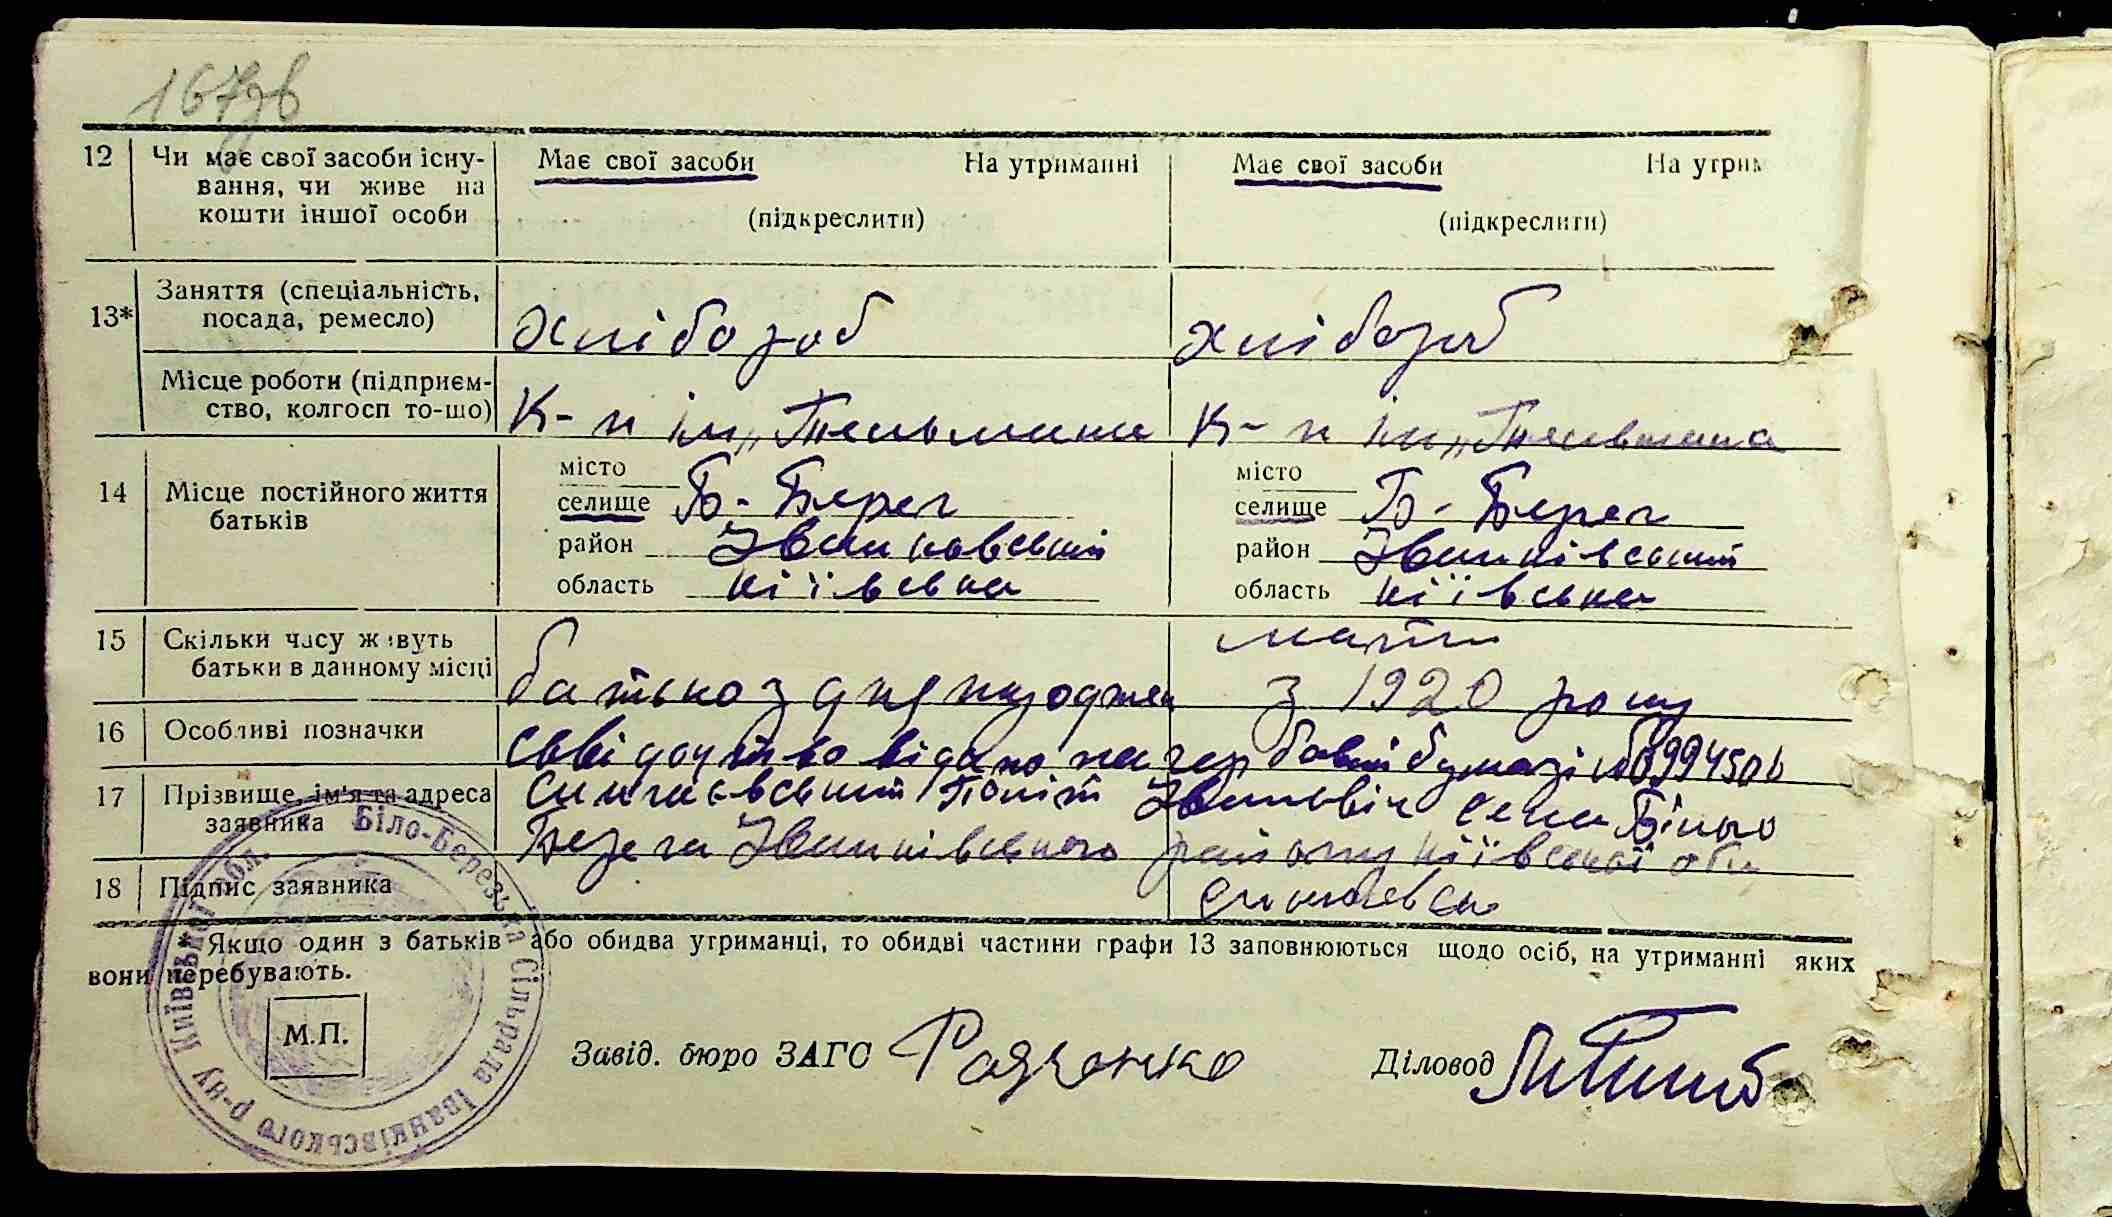 167зв
12 Чи має свої засоби існу- Має свої засоби На утриманні Має свої засоби На утрим
вання, чи живе на
кошти іншої особи (підкреслити) (підкреслити)
13* Заняття (спеціальність,
посада, ремесло) Хлібороб Хлібороб
Місце роботи (підприєм-
ство, колгосп то-що) К-п ім „Тельмана К-п ім „Тельмана
14 Місце постійного життя
батьків
місто місто
селище Б-Берег селище Б-Берег
район Іванковський район Іванківський
область Київська область Київська
15 Скільки часу живуть мати
батьки в данному місці батько з дня з 1920 року
16 Особливі позначки Свідоцтво видано на гербовій бумазі №
17 Прізвище, ім'я та адреса Іванович села Біло
заявника Берега Іванківського району Київської обл,
18 Підпис заявника
* Якщо один з батьків або обидва утриманці, то обидві частини графи 13 заповнюються щодо осіб, на утриманні яких
вони перебувають.
Біло-Березька Сільрада Іванківського р-ну Київської обл.
М.П.
Завід. бюро ЗАГС Діловод